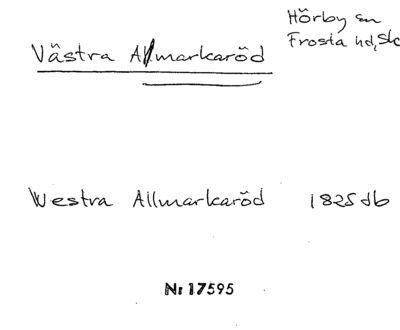 Hörby sn
Västra Almarkaröd
Frosta hd, Sk
Westra Allmarkaröd 1825 db
Nr 17595